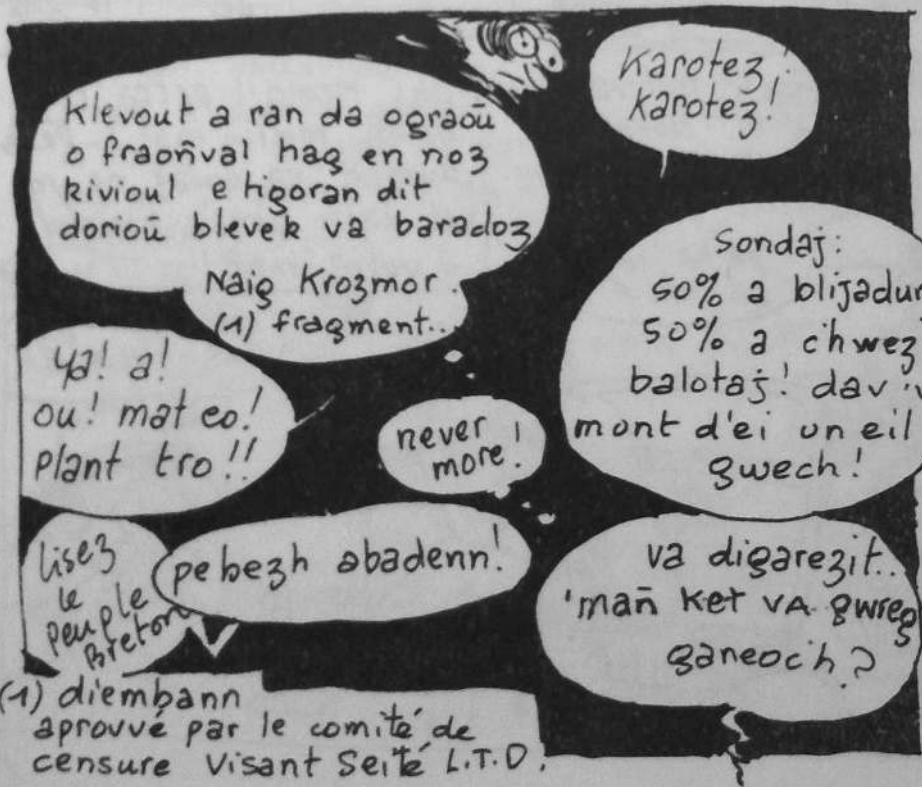 Klevout a ran da ograoù
o fraoñval hag en noz
kivioul e tigoran dit
dorioù blevek va baradoz
Naig Krozmor.
(1) fragment..
Karotez!
Karotez!
Sondaj:
50% a blijadur
50% a c'hwez
balotaj! dav
mont d'ei un eil
gwech!
ya! a!
ou! mat eo!
plant tro!!
never
more!
lisez
le
peuple
Breton
pebezh abadenn!
va digarezit..
'mañ ket VA gwreg
ganeoc'h?
(1) diembann
aprouvé par le comité de
censure Visant Seité L.T.D.